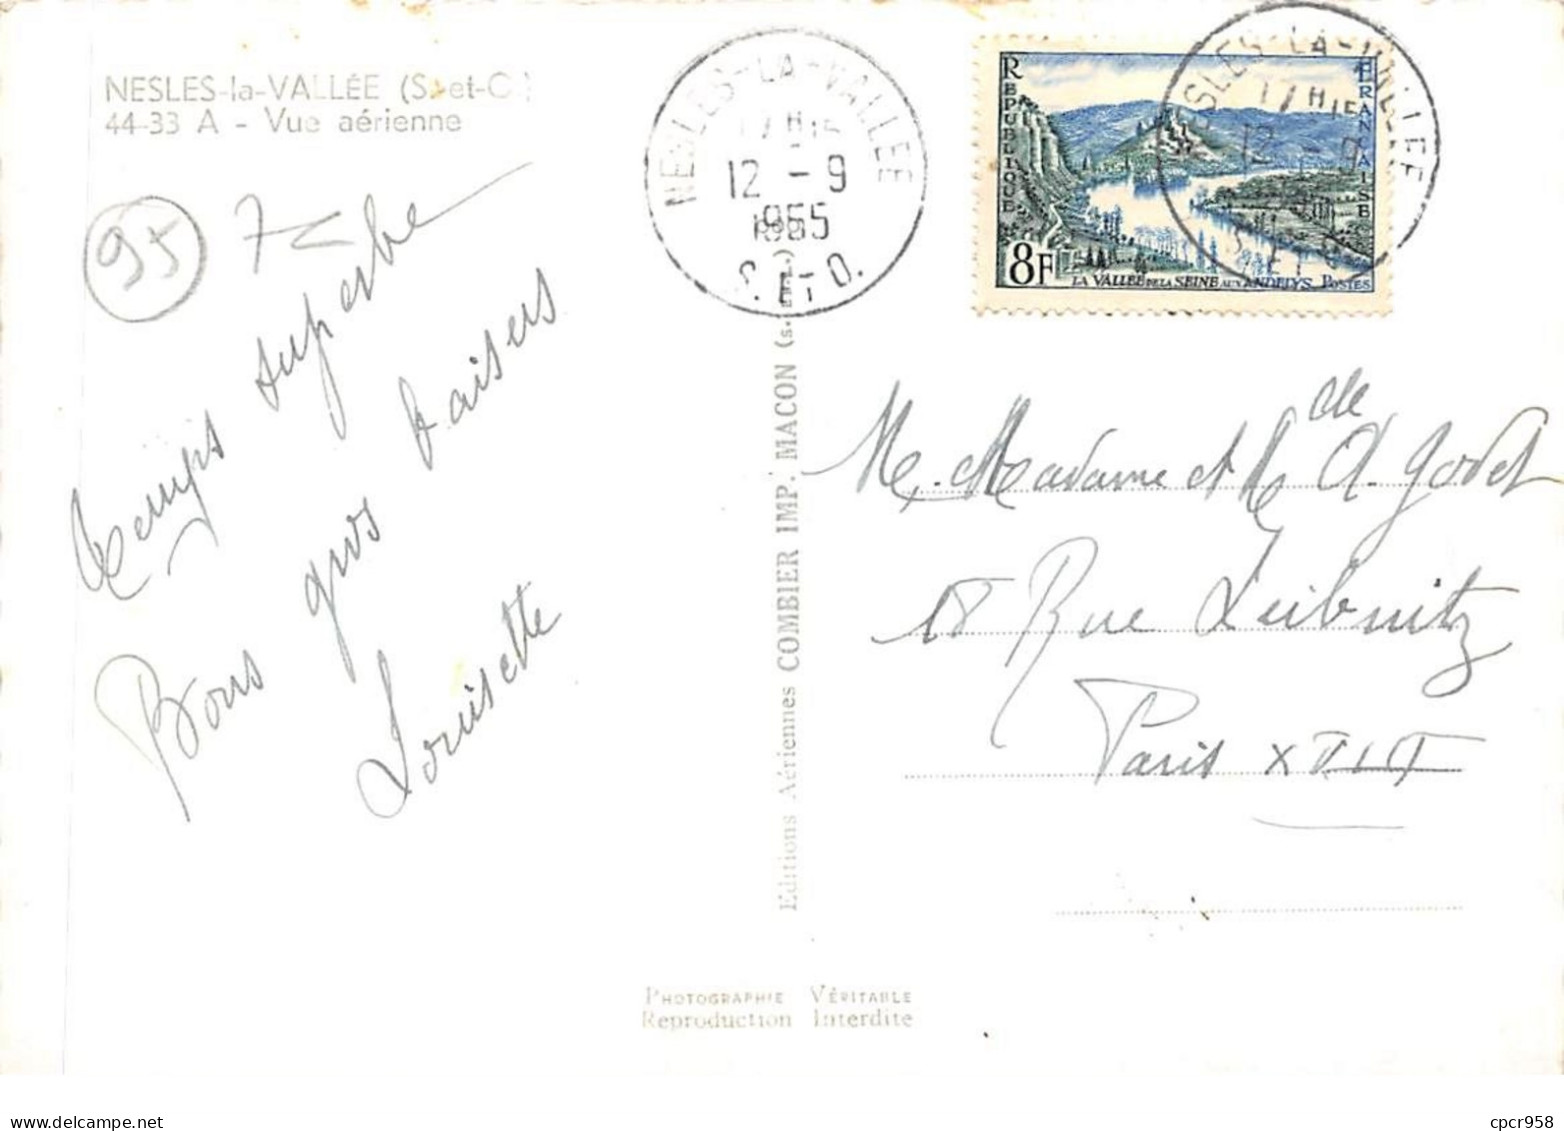 NESLES-la-VALLÉE (S.-et-O.)
44-33 A - Vue aérienne
95
Temps superbe
Bons gros baisers
Louisette
NESLES-LA-VALLEE
17H15
12 - 9
1955
S. ET O.
REPUBLIQUE FRANÇAISE
8F
LA VALLEE DE LA SEINE AUX ANDELYS. POSTES
NESLES-LA-VALLEE
17H15
12 - 9
S. ET O.
Editions Aériennes COMBIER IMP. MACON (S.-et-L.)
M. Madame et Mlle A. Godet
18 Rue Leibnitz
Paris XVIII
PHOTOGRAPHIE VÉRITABLE
Reproduction Interdite
cpcr958